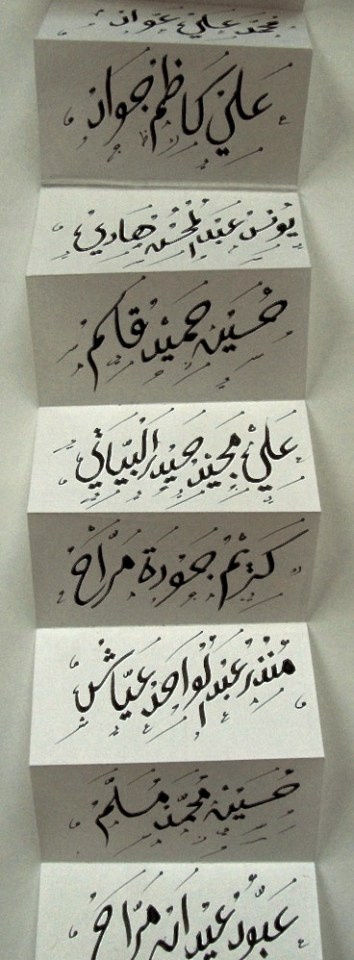 محمد علي عواد
علي كاظم جواد
يونس عبد المحسن هادي
حسين حميد قاسم
علي مجيد حيدر البياتي
كريم جودة مراح
منذر عبد الواحد عياش
حسين محمد مسلم
عبود عيدان مراح